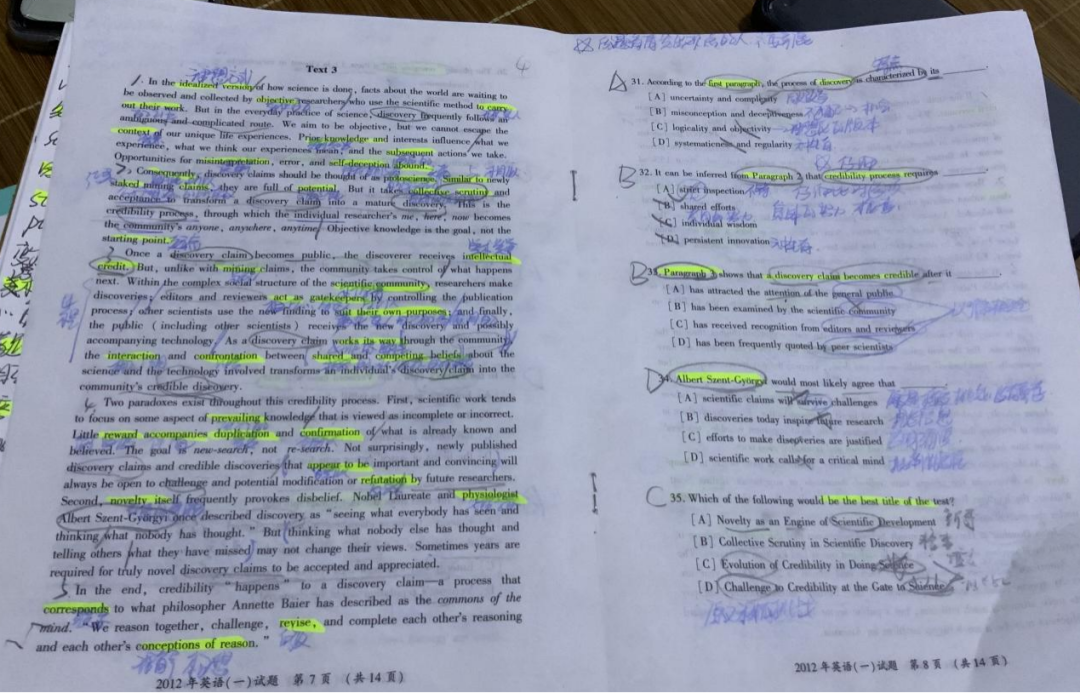 Text 3
1. In the idealized version of how science is done, facts about the world are waiting to
be observed and collected by objective researchers who use the scientific method to carry
out their work. But in the everyday practice of science, discovery frequently follows an
ambiguous and complicated route. We aim to be objective, but we cannot escape the
context of our unique life experiences. Prior knowledge and interests influence what we
experience, what we think our experiences mean, and the subsequent actions we take.
Opportunities for misinterpretation, error, and self-deception abound.
2 Consequently, discovery claims should be thought of as protoscience. Similar to newly
staked mining claims, they are full of potential. But it takes collective scrutiny and
acceptance to transform a discovery claim into a mature discovery. This is the
credibility process, through which the individual researcher's me, here, now becomes
the community's anyone, anywhere, anytime. Objective knowledge is the goal, not the
starting point.
3 Once a discovery claim becomes public, the discoverer receives intellectual
credit. But, unlike with mining claims, the community takes control of what happens
next. Within the complex social structure of the scientific community, researchers make
discoveries; editors and reviewers act as gatekeepers by controlling the publication
process; other scientists use the new finding to suit their own purposes; and finally,
the public (including other scientists) receives the new discovery and possibly
accompanying technology. As a discovery claim works its way through the community,
the interaction and confrontation between shared and competing beliefs about the
science and the technology involved transforms an individual's discovery claim into the
community's credible discovery.
4. Two paradoxes exist throughout this credibility process. First, scientific work tends
to focus on some aspect of prevailing knowledge that is viewed as incomplete or incorrect.
Little reward accompanies duplication and confirmation of what is already known and
believed. The goal is new-search, not re-search. Not surprisingly, newly published
discovery claims and credible discoveries that appear to be important and convincing will
always be open to challenge and potential modification or refutation by future researchers.
Second, novelty itself frequently provokes disbelief. Nobel Laureate and physiologist
Albert Szent-Györgyi once described discovery as "seeing what everybody has seen and
thinking what nobody has thought." But thinking what nobody else has thought and
telling others what they have missed may not change their views. Sometimes years are
required for truly novel discovery claims to be accepted and appreciated.
5 In the end, credibility "happens" to a discovery claim—a process that
corresponds to what philosopher Annette Baier has described as the commons of the
mind. "We reason together, challenge, revise, and complete each other's reasoning
and each other's conceptions of reason."
2012年英语(一)试题 第7页 (共14页)
D 31. According to the first paragraph, the process of discovery is characterized by its ______.
[A] uncertainty and complexity
[B] misconception and deceptiveness
[C] logicality and objectivity
[D] systematicness and regularity
B 32. It can be inferred from Paragraph 2 that credibility process requires ______.
[A] strict inspection
[B] shared efforts
[C] individual wisdom
[D] persistent innovation
B 33. Paragraph 3 shows that a discovery claim becomes credible after it ______.
[A] has attracted the attention of the general public
[B] has been examined by the scientific community
[C] has received recognition from editors and reviewers
[D] has been frequently quoted by peer scientists
D 34. Albert Szent-Györgyi would most likely agree that ______.
[A] scientific claims will survive challenges
[B] discoveries today inspire future research
[C] efforts to make discoveries are justified
[D] scientific work calls for a critical mind
C 35. Which of the following would be the best title of the test?
[A] Novelty as an Engine of Scientific Development
[B] Collective Scrutiny in Scientific Discovery
[C] Evolution of Credibility in Doing Science
[D] Challenge to Credibility at the Gate to Science
2012年英语(一)试题 第8页 (共14页)